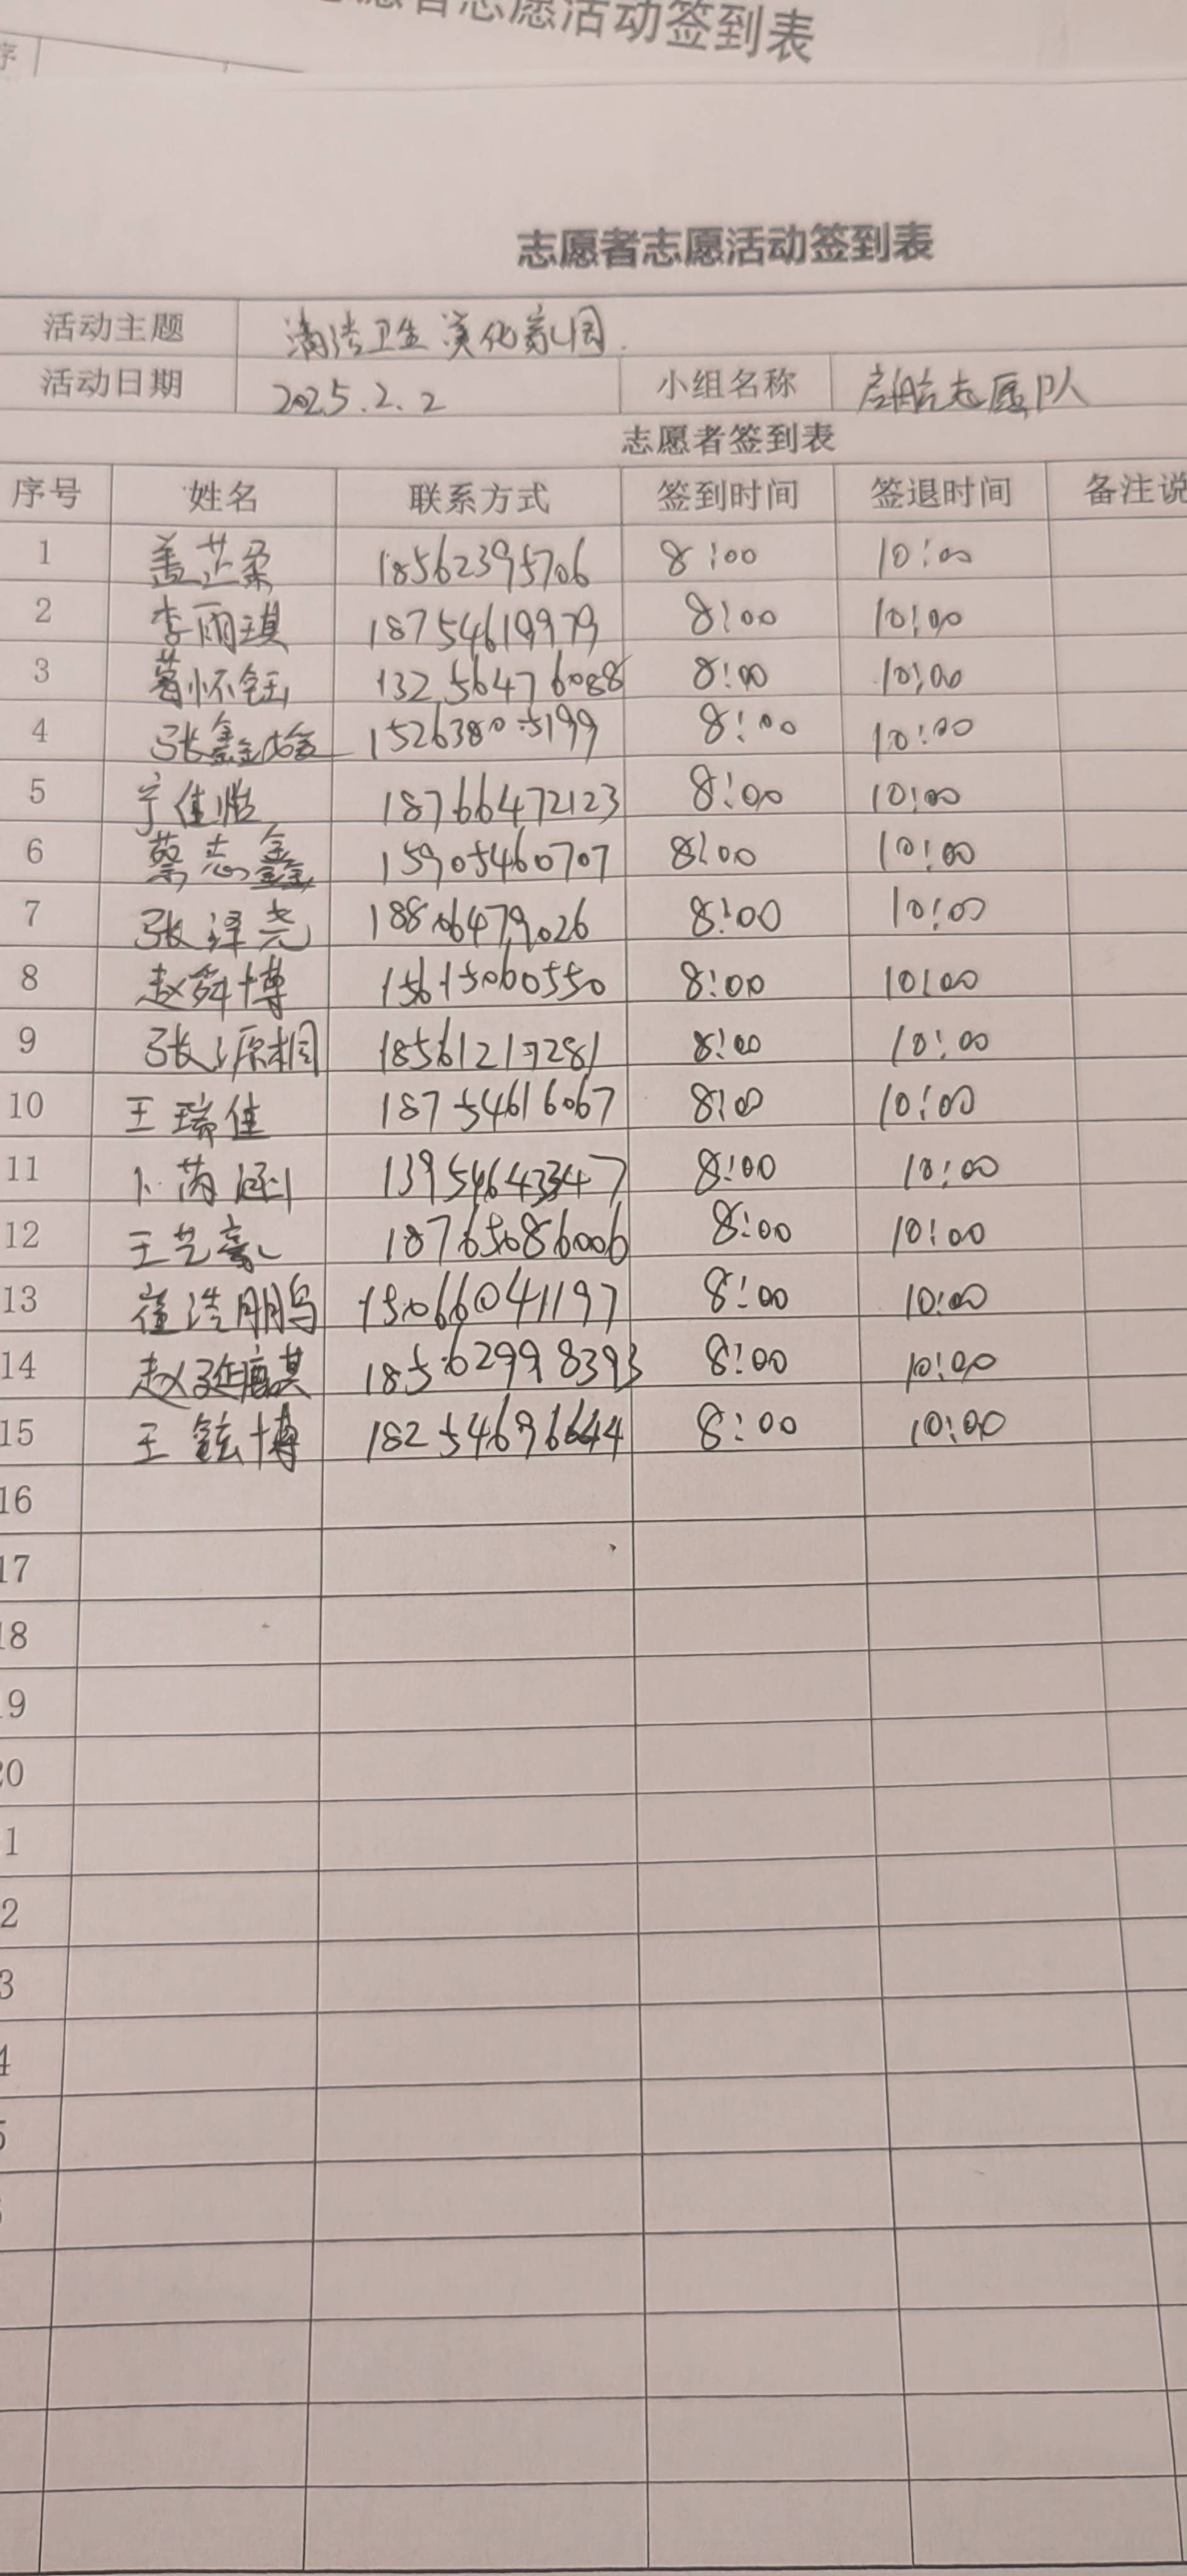 志愿者志愿活动签到表
序
志愿者志愿活动签到表
活动主题 清洁卫生 美化家园.
活动日期 2025.2.2 小组名称 启航志愿队
志愿者签到表
序号 姓名 联系方式 签到时间 签退时间 备注说
1 盖芷柔 18562395706 8:00 10:00
2 李雨琪 18754619979 8:00 10:00
3 葛怀钰 13256476088 8:00 10:00
4 张鑫 15263805199 8:00 10:00
5 宁佳怡 18766472123 8:00 10:00
6 蔡志鑫 15905460707 8:00 10:00
7 张泽尧 18806479026 8:00 10:00
8 赵舜博 15615060550 8:00 10:00
9 张源桐 18561217281 8:00 10:00
10 王瑞佳 18754616067 8:00 10:00
11 卜芮涵 13954643347 8:00 10:00
12 王艺豪 18765086006 8:00 10:00
13 崔浩鹏 15066041197 8:00 10:00
14 赵延 18562998393 8:00 10:00
15 王鋐博 18254696644 8:00 10:00
16
17
18
19
20
1
2
3
4
5